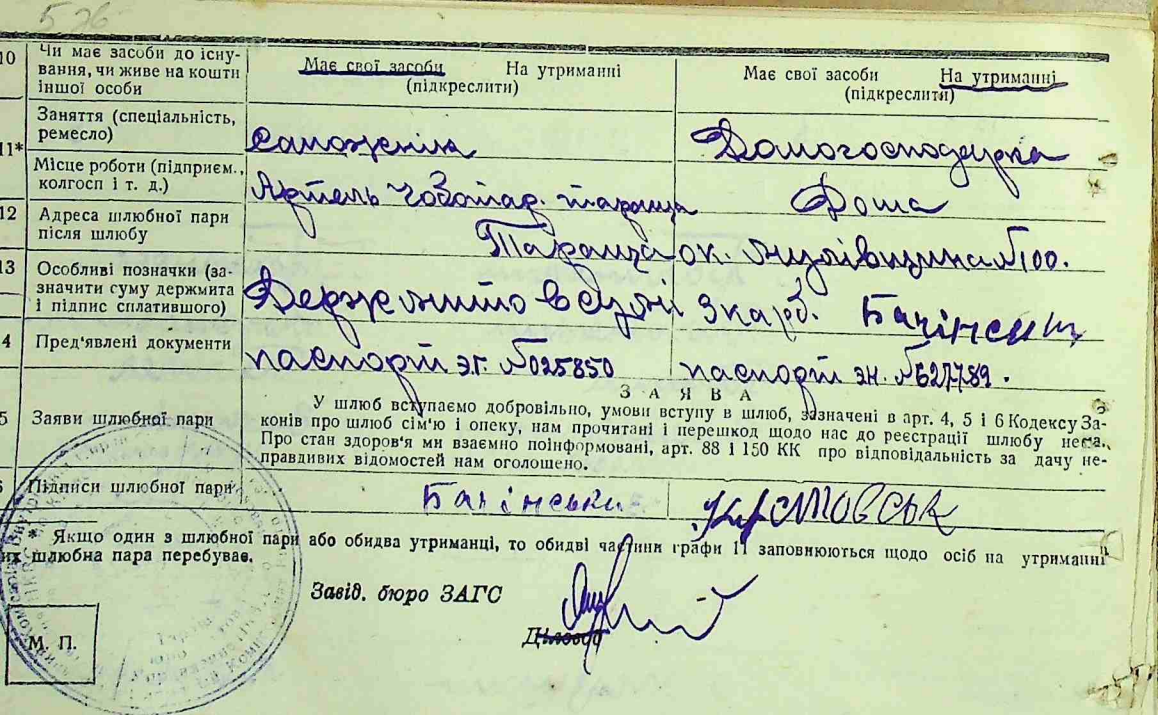 526
10 Чи має засоби до існу-
вання, чи живе на кошти
іншої особи
Має свої засоби На утриманні
(підкреслити)
Має свої засоби На утриманні
(підкреслити)
11* Заняття (спеціальність,
ремесло)
Домогосподарка
Місце роботи (підприєм.,
колгосп і т. д.)
Артель Чоботар. Тараща
Дома
12 Адреса шлюбної пари
після шлюбу
Тараща ок. №100.
13 Особливі позначки (за-
значити суму держмита
і підпис сплатившого)
Держмито в сумі 3 карб. Багінський
4 Пред'явлені документи
паспорт эг. №025850
паспорт эн. №627789.
ЗАЯВА
5 Заяви шлюбної пари
У шлюб вступаємо добровільно, умови вступу в шлюб, зазначені в арт. 4, 5 і 6 Кодексу За-
конів про шлюб сім'ю і опеку, нам прочитані і перешкод щодо нас до реєстрації шлюбу нема.
Про стан здоров'я ми взаємно поінформовані, арт. 88 і 150 КК про відповідальність за дачу не-
правдивих відомостей нам оголошено.
6 Підписи шлюбної пари
* Якщо один з шлюбної пари або обидва утриманці, то обидві частини графи 11 заповнюються щодо осіб на утриманні
их шлюбна пара перебуває.
Завід. бюро ЗАГС
Діловод
М. П.